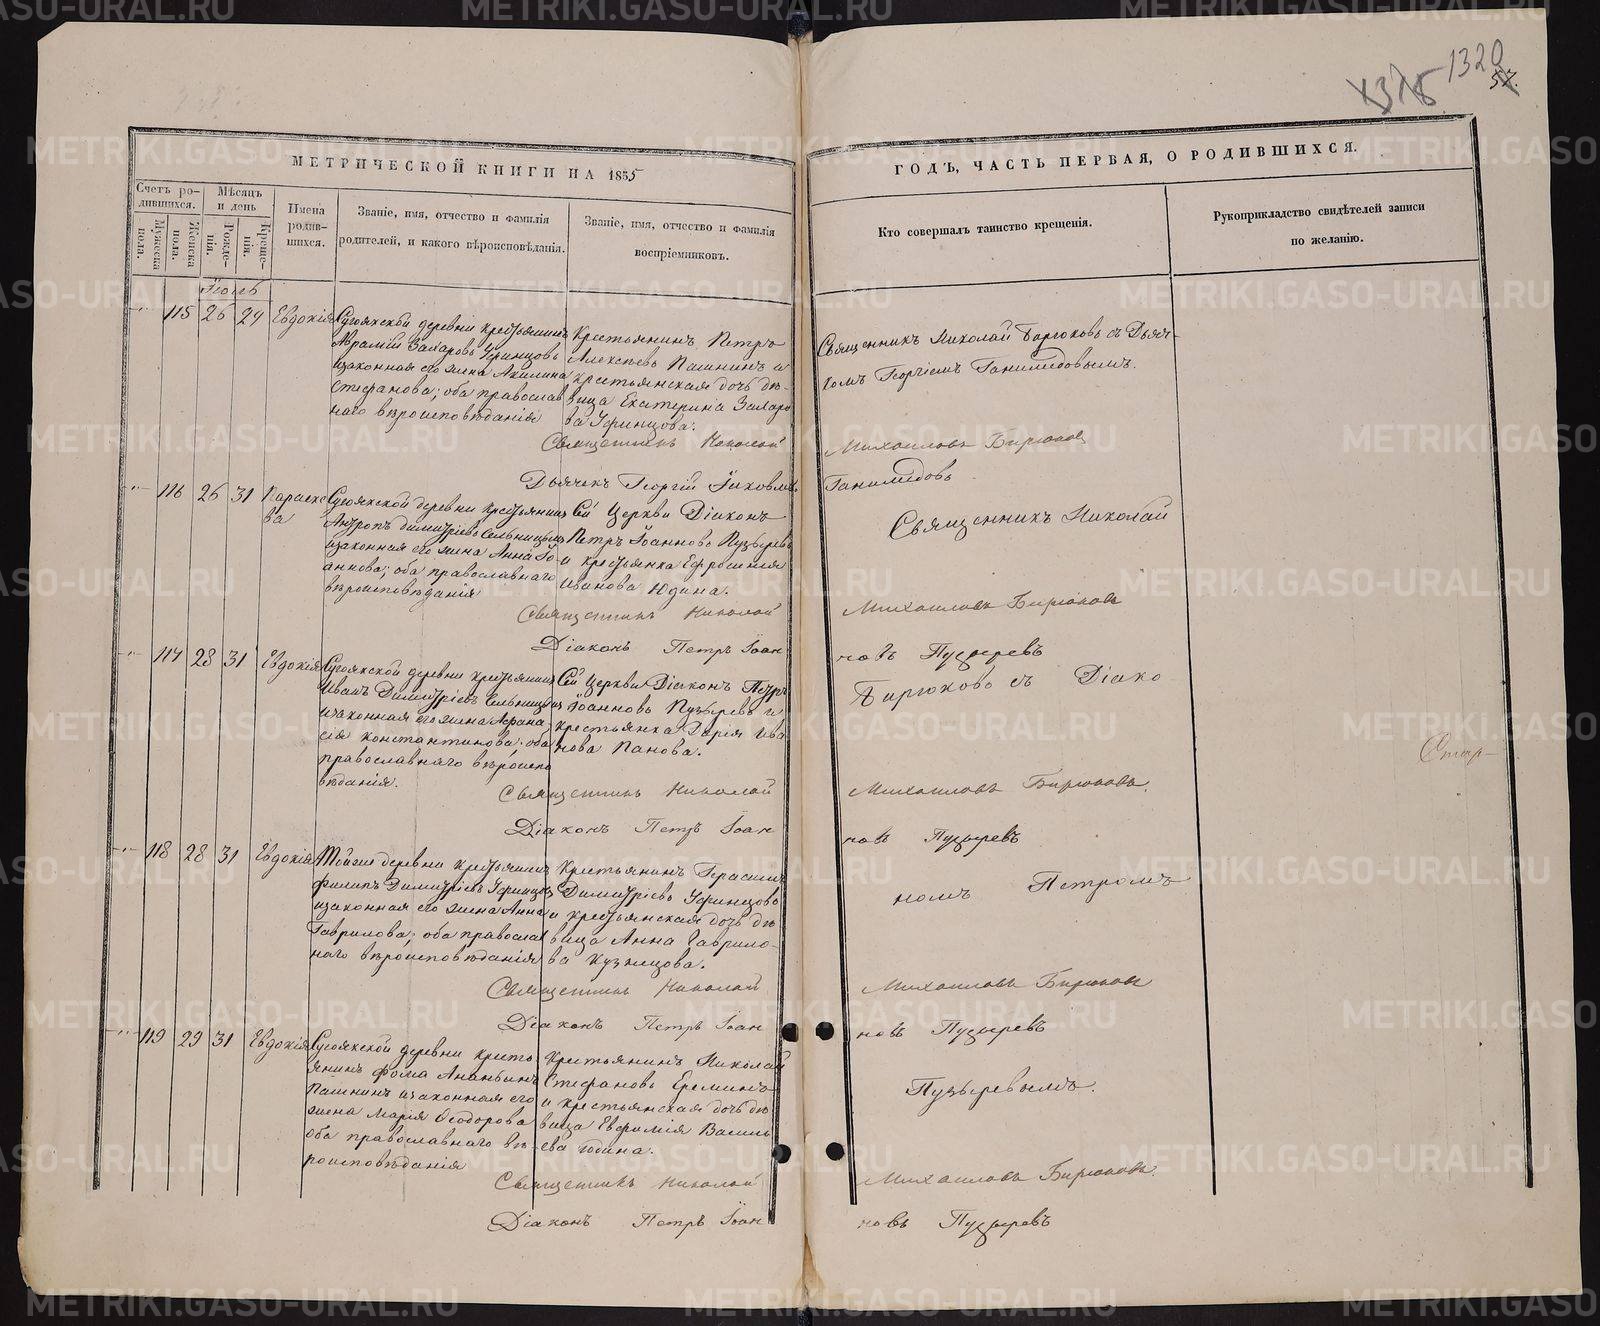 METRIKI.GASO-URAL.RU
1320
57.
МЕТРИЧЕСКОЙ КНИГИ НА 1855
ГОДЪ, ЧАСТЬ ПЕРВАЯ, О РОДИВШИХСЯ.
Счетъ ро-
дившихся.
Мужеска пола.
Женска пола.
Мѣсяцъ
и день
Рожде-
нія.
Креще-
нія.
Имена
родив-
шихся.
Званіе, имя, отчество и фамилія
родителей, и какого вѣроисповѣданія.
Званіе, имя, отчество и фамилія
воспріемниковъ.
Кто совершалъ таинство крещенія.
Рукоприкладство свидѣтелей записи
по желанію.
115 26 29 Евдокія
Сугоякской деревни крестьянинъ
Аврамій Захаровъ Уфинцовъ
изаконная его жена Акилина
Стефанова; оба православ
наго вѣроисповѣданія
Крестьянинъ Петръ
Алексѣевъ Пашнинъ и
крестьянская дочь дѣ-
вица Екатерина Захаро
ва Уфинцова.
Священникъ Николай Бирюковъ съ Дьяч-
комъ Георгіемъ Ганимедовымъ.
Священникъ Николай Михаиловъ Бирюковъ
Дьячекъ Георгій Іаковлевъ Ганимедовъ
116 26 31 Параске
ва
Сугоякской деревни крестьянинъ
Антропъ Димитріевъ Сельницынъ
изаконная его жена Анна Іо-
аннова; оба православнаго
вѣроисповѣданія
Сей Церкви Діаконъ
Петръ Іоанновъ Пузыревъ
и крестьянка Ефросинія
Иванова Юдина.
Священникъ Николай
Священникъ Николай Михаиловъ Бирюковъ
Діаконъ Петръ Іоанновъ Пузыревъ
117 28 31 Евдокія
Сугоякской деревни крестьянинъ
Иванъ Димитріевъ Сельницынъ
изаконная его жена Афана
сія Константинова; оба
православнаго вѣроиспо
вѣданія.
Сей Церкви Діаконъ Петръ
Іоанновъ Пузыревъ и
крестьянка Дарія Ива
нова Панова.
Бирюковъ съ Діако
Священникъ Николай Михаиловъ Бирюковъ.
Діаконъ Петръ Іоанновъ Пузыревъ
118 28 31 Евдокія
Тойже деревни крестьянинъ
Филипъ Димитріевъ Уфинцовъ
изаконная его жена Анна
Гаврилова; оба православ
наго вѣроисповѣданія
Крестьянинъ Герасимъ
Димитріевъ Уфинцовъ
и крестьянская дочь дѣ
вица Анна Гаврило-
ва Кузнецова.
номъ Петромъ
Священникъ Николай Михаиловъ Бирюковъ
Діаконъ Петръ Іоанновъ Пузыревъ
119 29 31 Евдокія
Сугоякской деревни кресть
янинъ Фома Ананьинъ
Пашнинъ изаконная его
жена Марія Ѳеодорова
оба православнаго вѣ-
роисповѣданія
Крестьянинъ Николай
Стефановъ Ереминъ
и крестьянская дочь дѣ
вица Евфимія Василь
ева Юдина.
Пузыревымъ.
Священникъ Николай Михаиловъ Бирюковъ.
Діаконъ Петръ Іоанновъ Пузыревъ